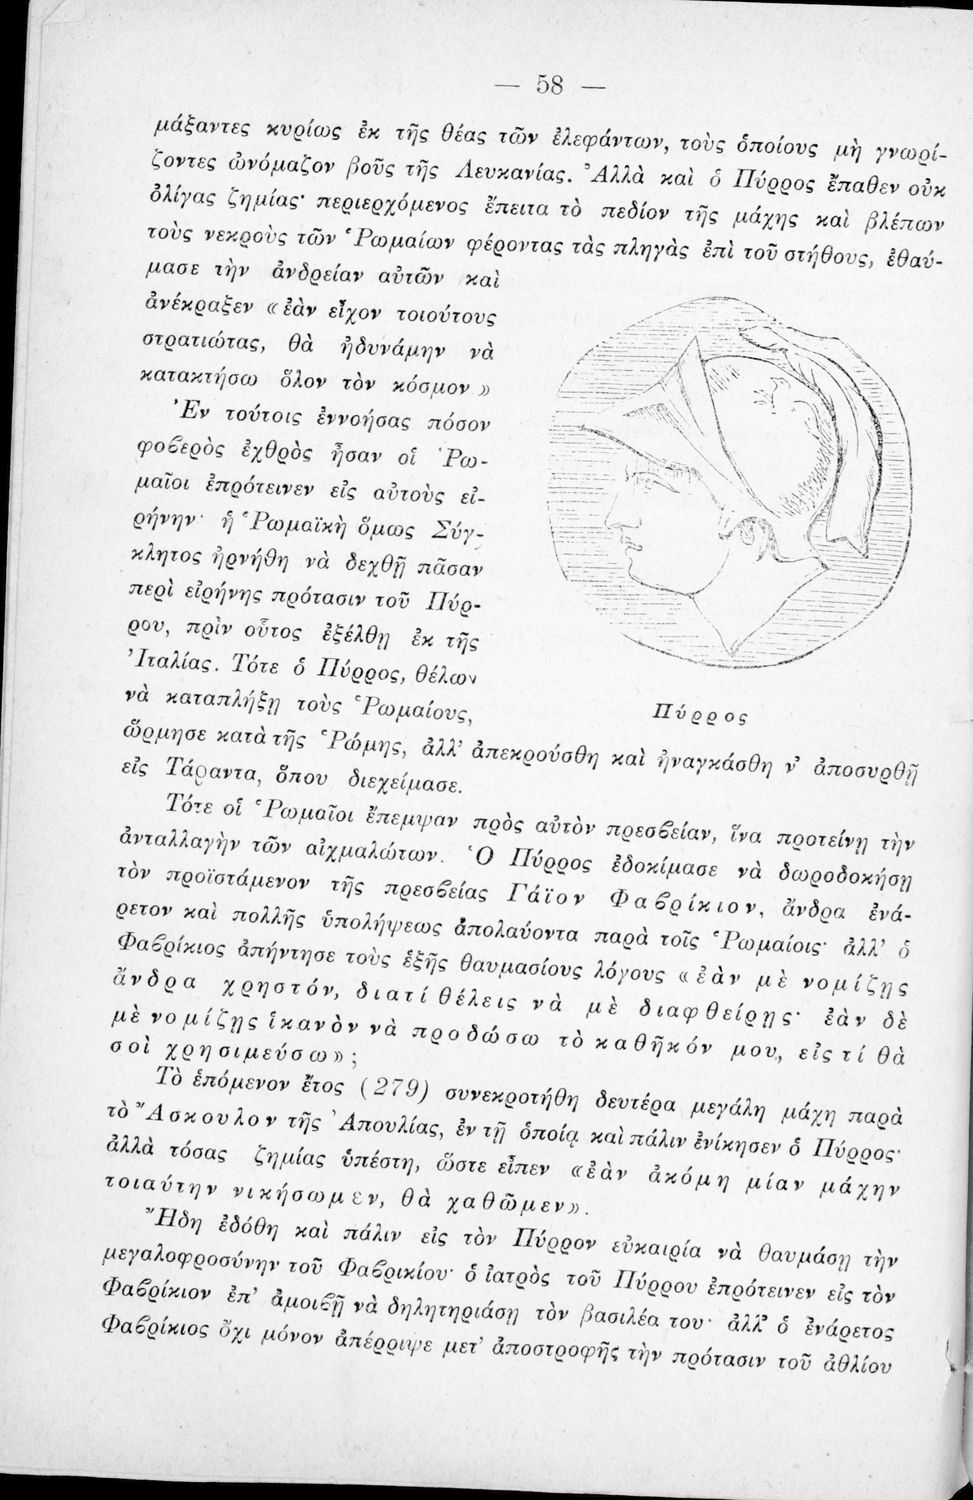 — 58 —
μάξαντες κυρίως ἐκ τῆς θέας τῶν ἐλεφάντων, τοὺς ὁποίους μὴ γνωρί-
ζοντες ὠνόμαζον βοῦς τῆς Λευκανίας. Ἀλλὰ καὶ ὁ Πύρρος ἔπαθεν οὐκ
ὀλίγας ζημίας· περιερχόμενος ἔπειτα τὸ πεδίον τῆς μάχης καὶ βλέπων
τοὺς νεκροὺς τῶν Ῥωμαίων φέροντας τὰς πληγὰς ἐπὶ τοῦ στήθους, ἐθαύ-
μασε τὴν ἀνδρείαν αὐτῶν καὶ
ἀνέκραξεν «ἐὰν εἶχον τοιούτους
στρατιώτας, θὰ ἠδυνάμην νὰ
κατακτήσω ὅλον τὸν κόσμον»
Ἐν τούτοις ἐννοήσας πόσον
φοβερὸς ἐχθρὸς ἦσαν οἱ Ῥω-
μαῖοι ἐπρότεινεν εἰς αὐτοὺς εἰ-
ρήνην· ἡ Ῥωμαϊκὴ ὅμως Σύγ-
κλητος ἠρνήθη νὰ δεχθῇ πᾶσαν
περὶ εἰρήνης πρότασιν τοῦ Πύρ-
ρου, πρὶν οὗτος ἐξέλθῃ ἐκ τῆς
Ἰταλίας. Τότε ὁ Πύρρος, θέλων
νὰ καταπλήξῃ τοὺς Ῥωμαίους,
Πύρρος
ὥρμησε κατὰ τῆς Ῥώμης, ἀλλ' ἀπεκρούσθη καὶ ἠναγκάσθη ν' ἀποσυρθῇ
εἰς Τάραντα, ὅπου διεχείμασε.
Τότε οἱ Ῥωμαῖοι ἔπεμψαν πρὸς αὐτὸν πρεσβείαν, ἵνα προτείνῃ τὴν
ἀνταλλαγὴν τῶν αἰχμαλώτων. Ὁ Πύρρος ἐδοκίμασε νὰ δωροδοκήσῃ
τὸν προϊστάμενον τῆς πρεσβείας Γάϊον Φαβρίκιον, ἄνδρα ἐνά-
ρετον καὶ πολλῆς ὑπολήψεως ἀπολαύοντα παρὰ τοῖς Ῥωμαίοις· ἀλλ' ὁ
Φαβρίκιος ἀπήντησε τοὺς ἑξῆς θαυμασίους λόγους «ἐὰν μὲ νομίζῃς
ἄνδρα χρηστόν, διατί θέλεις νὰ μὲ διαφθείρῃς· ἐὰν δὲ
μὲ νομίζῃς ἱκανὸν νὰ προδώσω τὸ καθῆκόν μου, εἰς τί θὰ
σοὶ χρησιμεύσω»;
Τὸ ἑπόμενον ἔτος (279) συνεκροτήθη δευτέρα μεγάλη μάχη παρὰ
τὸ Ἄσκουλον τῆς Ἀπουλίας, ἐν τῇ ὁποίᾳ καὶ πάλιν ἐνίκησεν ὁ Πύρρος·
ἀλλὰ τόσας ζημίας ὑπέστη, ὥστε εἶπεν «ἐὰν ἀκόμη μίαν μάχην
τοιαύτην νικήσωμεν, θὰ χαθῶμεν».
Ἤδη ἐδόθη καὶ πάλιν εἰς τὸν Πύρρον εὐκαιρία νὰ θαυμάσῃ τὴν
μεγαλοφροσύνην τοῦ Φαβρικίου· ὁ ἰατρὸς τοῦ Πύρρου ἐπρότεινεν εἰς τὸν
Φαβρίκιον ἐπ' ἀμοιβῇ νὰ δηλητηριάσῃ τὸν βασιλέα του· ἀλλ' ὁ ἐνάρετος
Φαβρίκιος ὄχι μόνον ἀπέρριψε μετ' ἀποστροφῆς τὴν πρότασιν τοῦ ἀθλίου